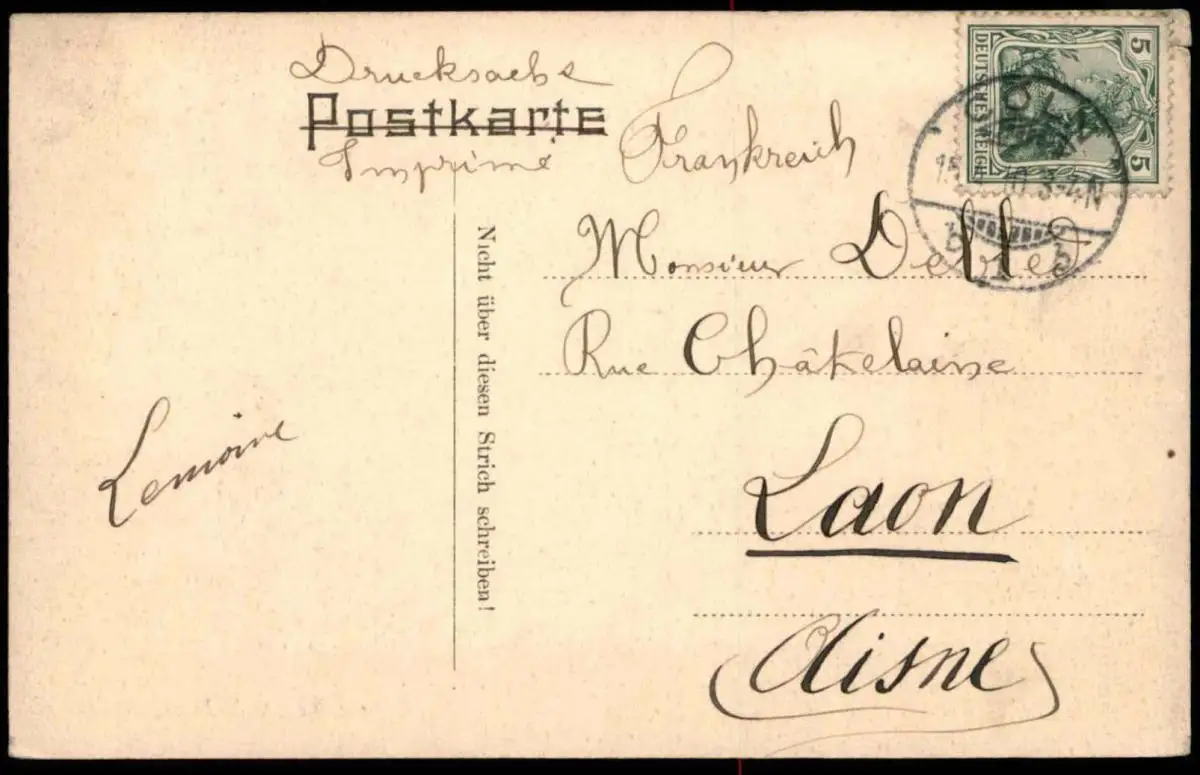 Drucksache
Postkarte
Imprimé
Frankreich
Monsieur
Rue Châtelaine
Laon
Aisne
Lemoine
Nicht über diesen Strich schreiben!
5 5
DEUTSCHES REICH
CÖLN
3-4N